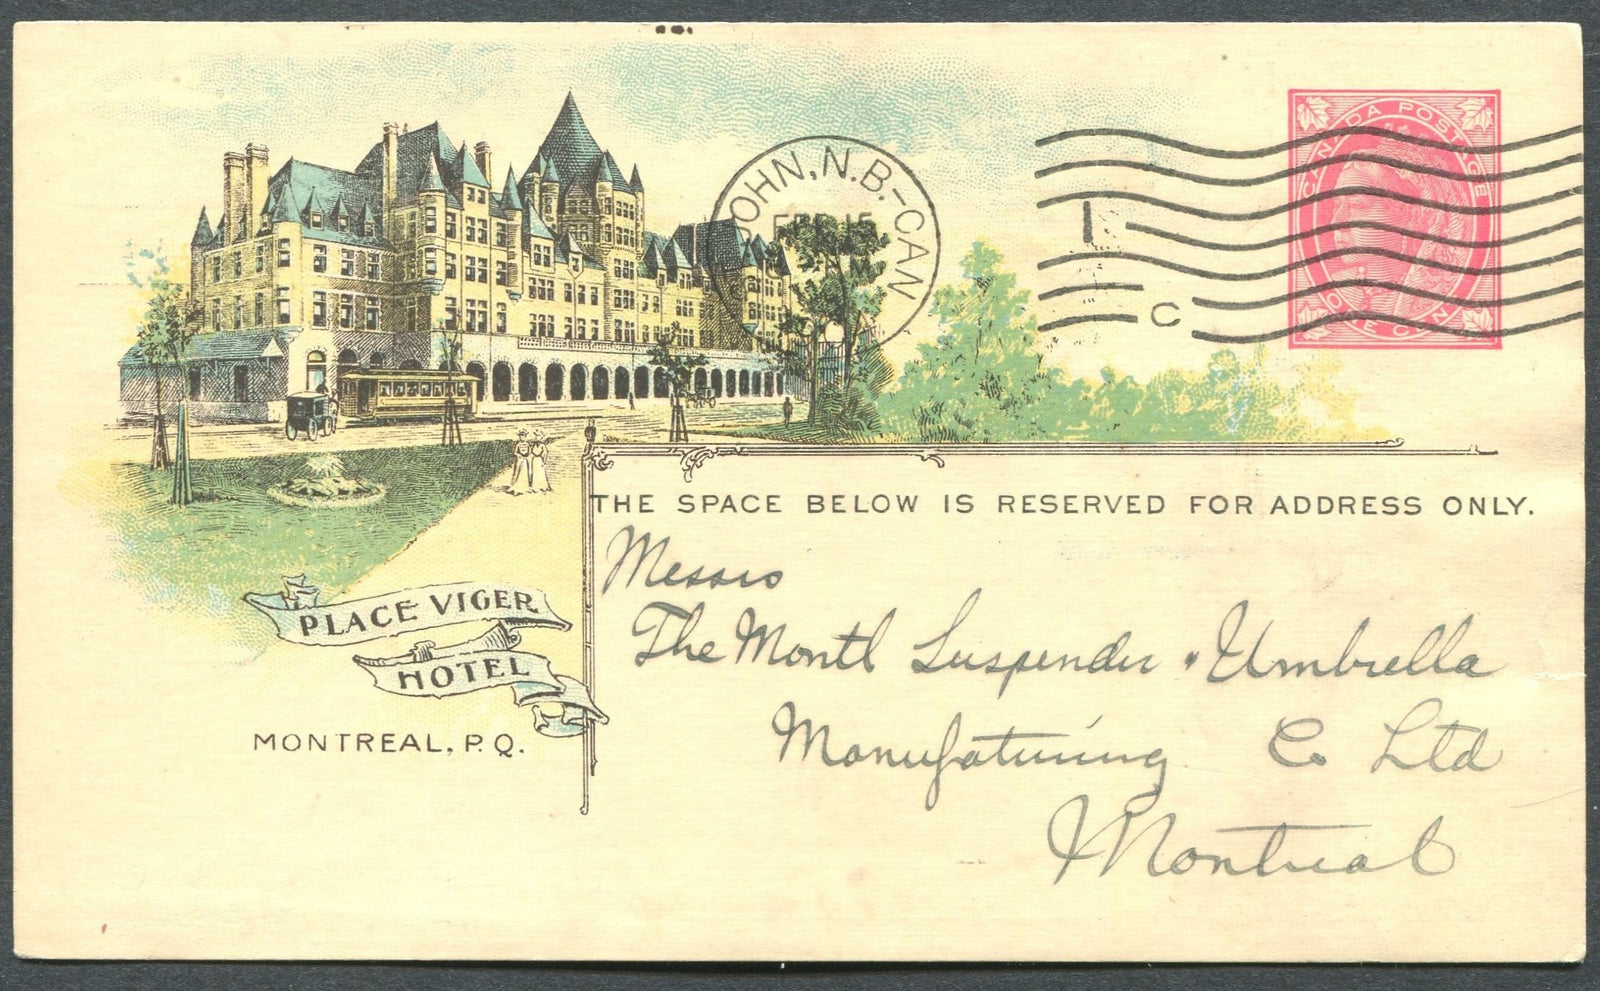 JOHN, N.B-CAN
FEB 15
I
C
CANADA POSTAGE
ONE CENT
THE SPACE BELOW IS RESERVED FOR ADDRESS ONLY.
Messrs
The Montl Suspender & Umbrella
Manufaturing Co Ltd
Montreal
PLACE VIGER
HOTEL
MONTREAL, P.Q.